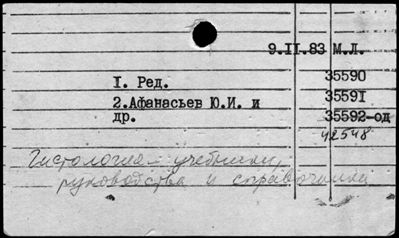 9.II.83 М.Л.
I. Ред. 35590
2.Афанасьев Ю.И. и 35591
др. 35592-од
42548
Гистология – учебники,
руководства и справочники